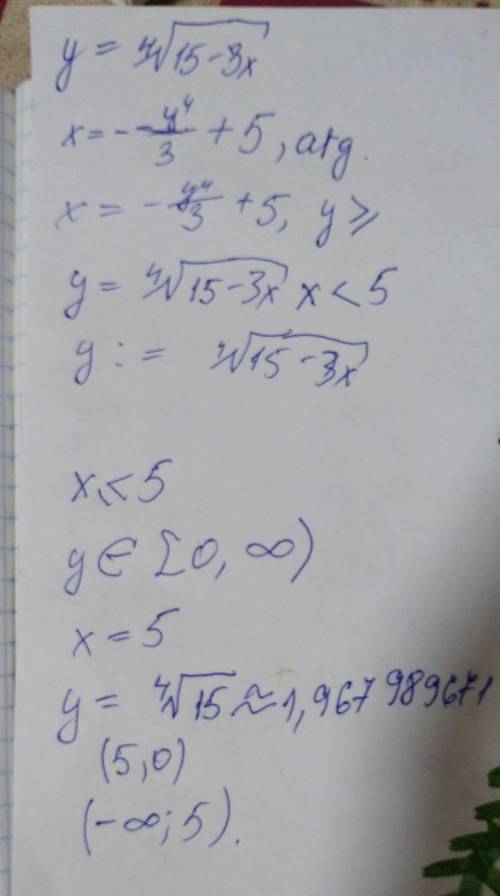 y = ∜(15-3x)
x = - y⁴/3 + 5, arg.
x = - y⁴/3 + 5, y ≥
y = ∜(15-3x) x < 5
y := ∜(15-3x)
x ≤ 5
y ∈ [0, ∞)
x = 5
y = ∜15 ≈ 1,967989671
(5,0)
(-∞; 5).